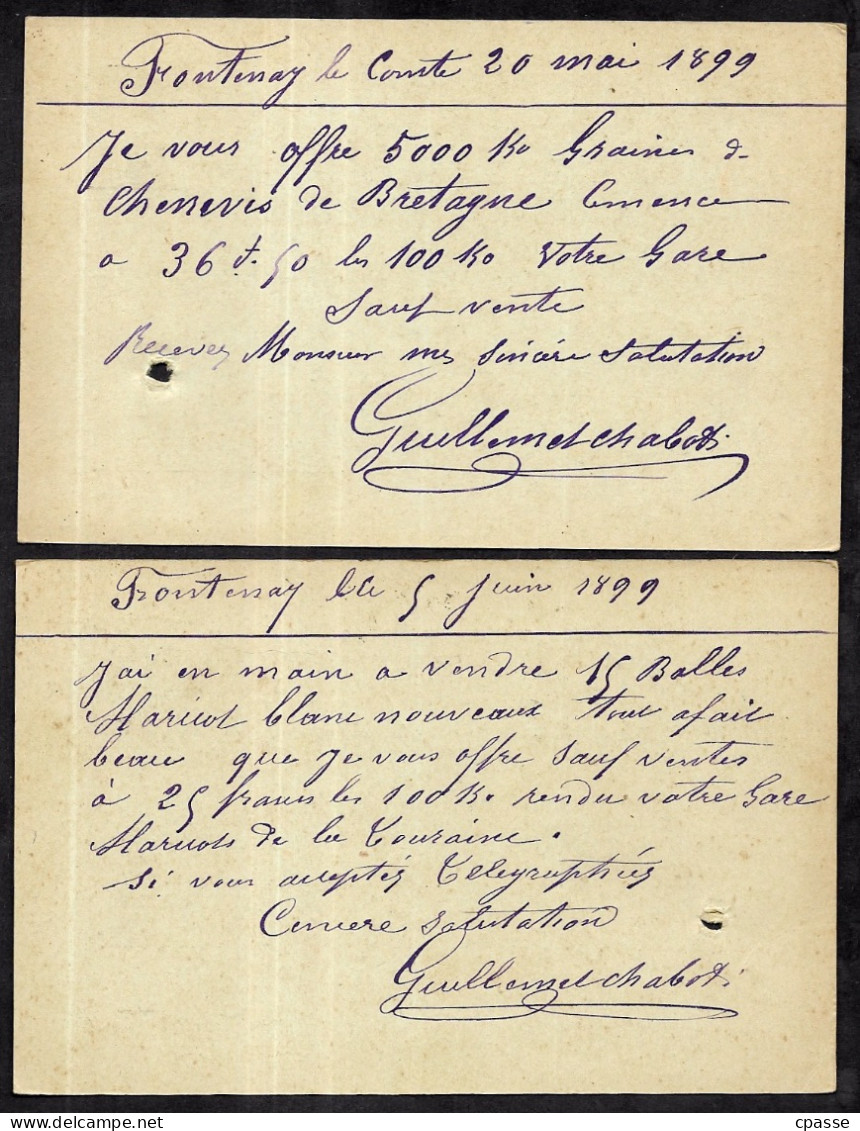 Frontenay le Comte 20 mai 1899
Je vous offre 5000 Ko Graines de
Chenevis de Bretagne Cemence
a 36 f. 50 les 100 Ko Votre Gare
Sauf vente
Recevez Monsieur mes Sincère Salutation
Guillemet chabot
Frontenay le 5 Juin 1899
J'ai en main a vendre 15 Balles
Haricot blanc nouveaux tout afait
beau que Je vous offre Sauf ventes
à 25 francs les 100 Ko rendu votre Gare
Haricots de la Touraine.
Si vous acceptés Télégraphiés
Cencere Salutation
Guillemet chabot
cpasse